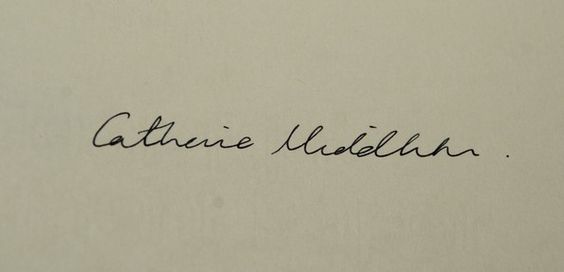 Catherine Middleton.